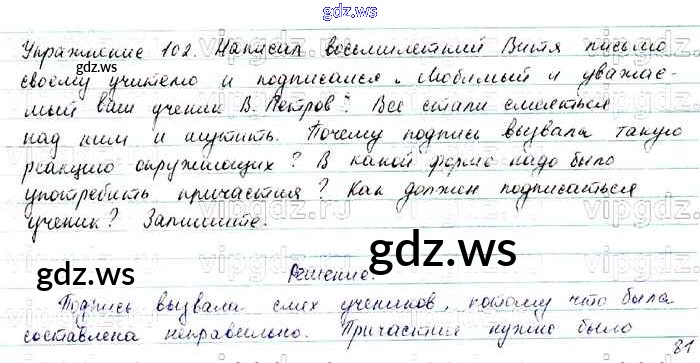 gdz.ws
Упражнение 102. Написал восьмилетний Витя письмо
своему учителю и подписался „Любимый и уважае-
мый ваш ученик В. Петров". Все стали смеяться
над ним и шутить. Почему подпись вызвала такую
реакцию окружающих? В какой форме надо было
употребить причастия? Как должен подписаться
ученик? Запишите.
gdz.ws
Решение.
Подпись вызвала смех учеников, потому что была
составлена неправильно. Причастия нужно было
31